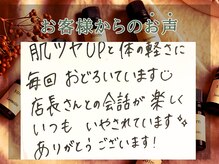 お客様からのお声
肌ツヤUPと体の軽さに
毎回おどろいています
店長さんとの会話が楽しく
いつもいやされています
ありがとうございます!